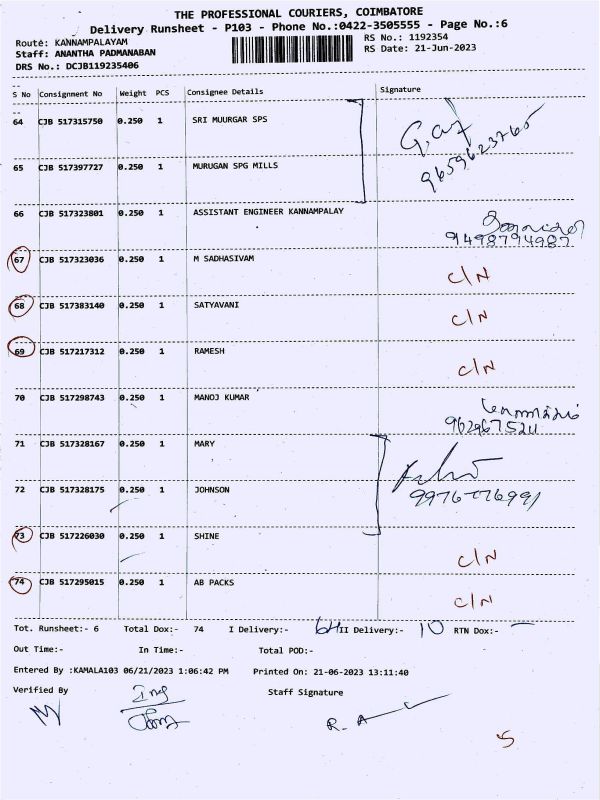 THE PROFESSIONAL COURIERS, COIMBATORE
Delivery Runsheet - P103 - Phone No.:0422-3505555 - Page No.:6
Route: KANNAMPALAYAM
RS No.: 1192354
Staff: ANANTHA PADMANABAN
RS Date: 21-Jun-2023
DRS No.: DCJB119235406
S No Consignment No Weight PCS Consignee Details Signature
64 CJB 517315750 0.250 1 SRI MUURGAR SPS
9659623765
65 CJB 517397727 0.250 1 MURUGAN SPG MILLS
66 CJB 517323801 0.250 1 ASSISTANT ENGINEER KANNAMPALAY
9498794987
67 CJB 517323036 0.250 1 M SADHASIVAM C/N
68 CJB 517383140 0.250 1 SATYAVANI C/N
69 CJB 517217312 0.250 1 RAMESH C/N
70 CJB 517298743 0.250 1 MANOJ KUMAR
9629675211
71 CJB 517328167 0.250 1 MARY
72 CJB 517328175 0.250 1 JOHNSON
9976776991
73 CJB 517226030 0.250 1 SHINE C/N
74 CJB 517295015 0.250 1 AB PACKS C/N
Tot. Runsheet:- 6 Total Dox:- 74 I Delivery:- 64 II Delivery:- 10 RTN Dox:- —
Out Time:- In Time:- Total POD:-
Entered By :KAMALA103 06/21/2023 1:06:42 PM Printed On: 21-06-2023 13:11:40
Verified By Staff Signature
R. A
5